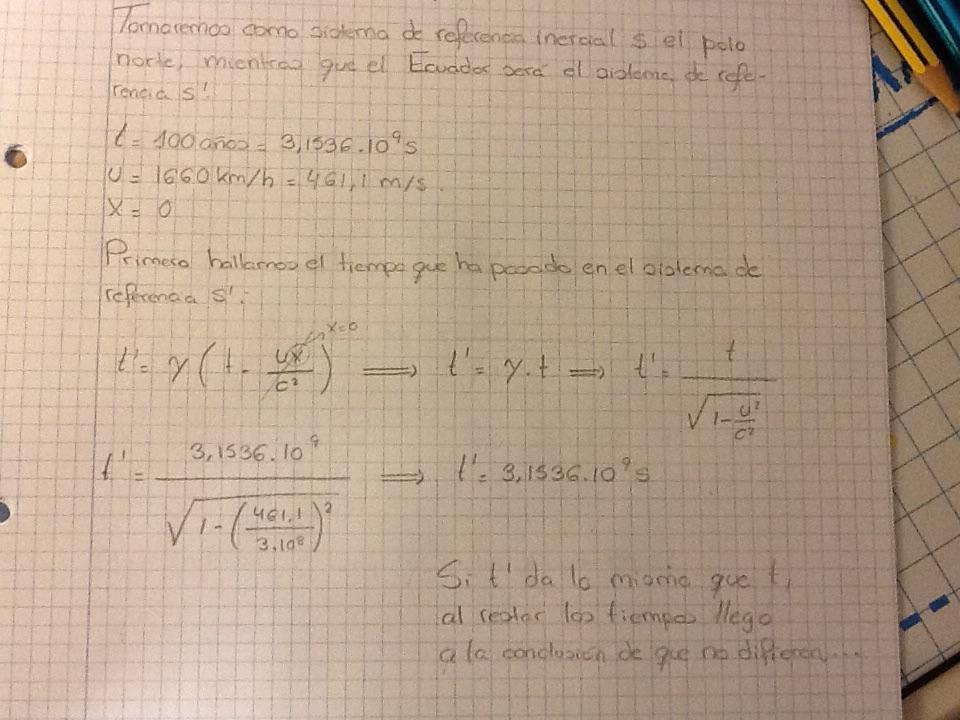 Tomaremos como sistema de referencia inercial S el polo
norte, mientras que el Ecuador será el sistema de refe-
rencia S'.
t = 100 años = 3,1536.10⁹ s
U = 1660 km/h = 461,1 m/s.
X = 0
Primero hallamos el tiempo que ha pasado en el sistema de
referencia S':
x=0
t' = γ (t - ux/c²) ⟹ t' = γ.t ⟹ t' = t/√(1 - u²/c²)
t' = 3,1536.10⁹/√(1 - (461,1/3.10⁸)²) ⟹ t' = 3,1536.10⁹ s
Si t' da lo mismo que t,
al restar los tiempos llego
a la conclusión de que no difieren...